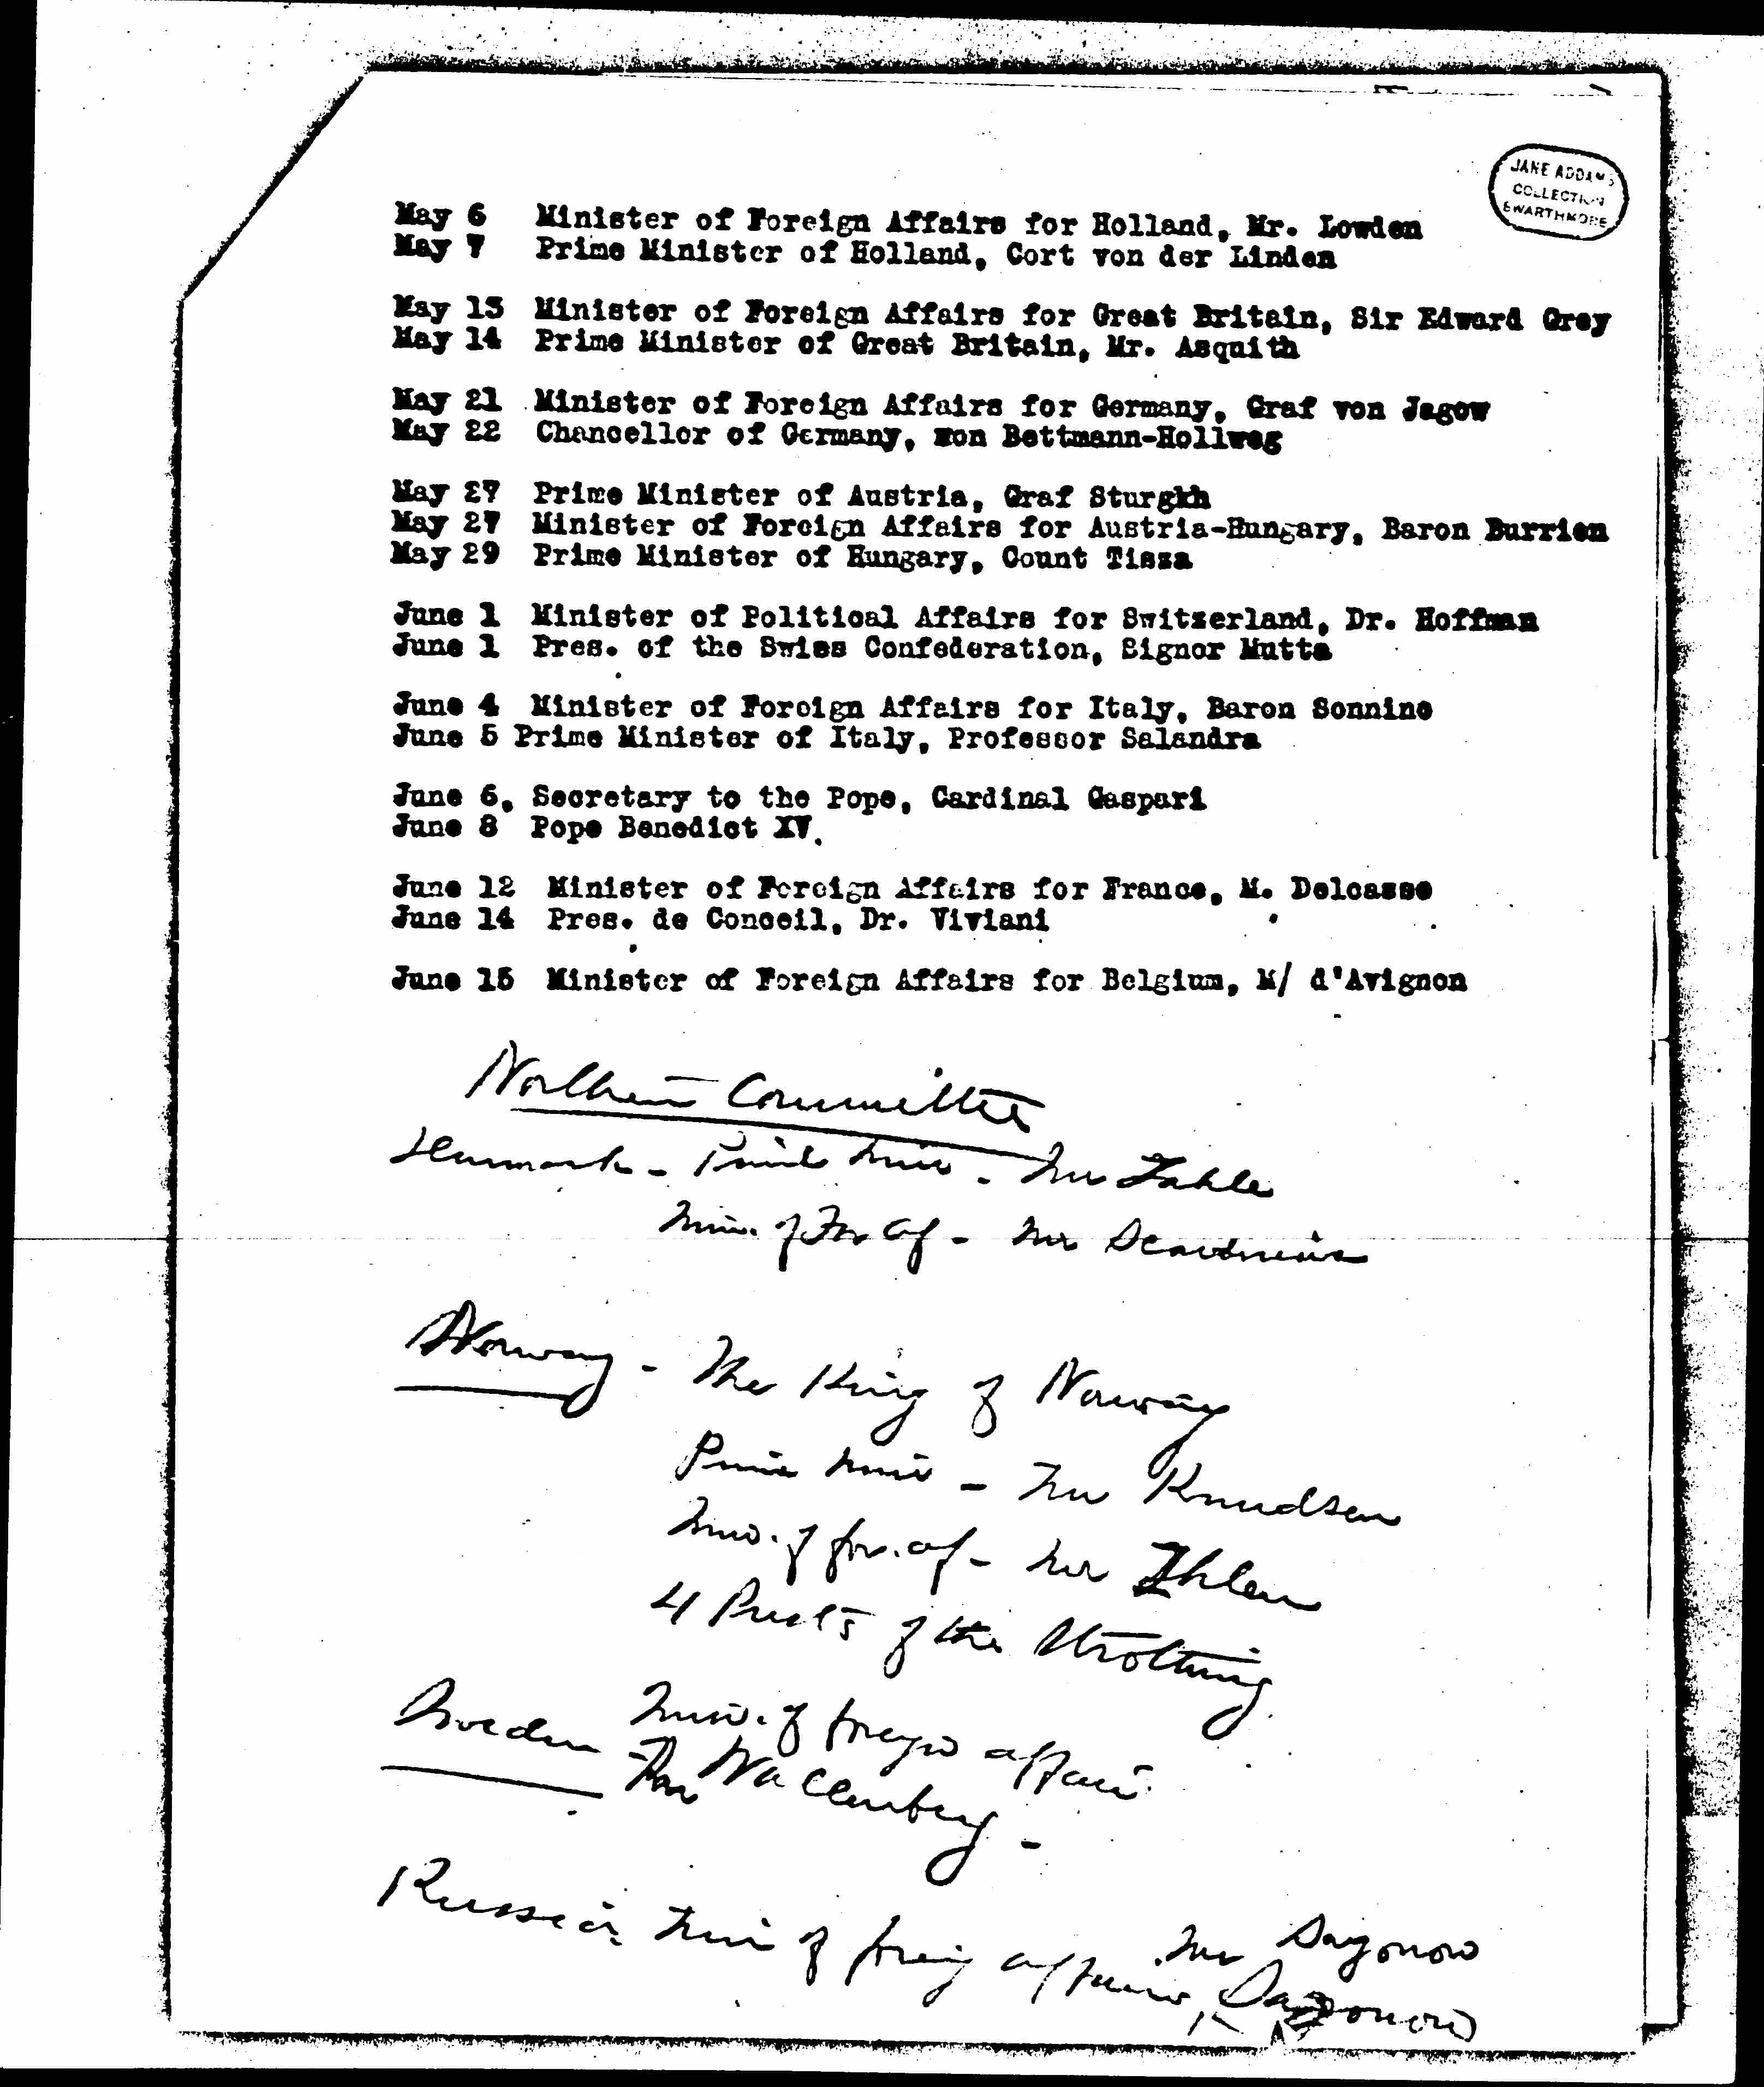 JANE ADDAMS
COLLECTION
SWARTHMORE
May 6 Minister of Foreign Affairs for Holland, Mr. Lowden
May 7 Prime Minister of Holland, Cort von der Linden
May 13 Minister of Foreign Affairs for Great Britain, Sir Edward Grey
May 14 Prime Minister of Great Britain, Mr. Asquith
May 21 Minister of Foreign Affairs for Germany, Graf von Jagow
May 22 Chancellor of Germany, von Bettmann-Hollweg
May 27 Prime Minister of Austria, Graf Sturgkh
May 27 Minister of Foreign Affairs for Austria-Hungary, Baron Burrien
May 29 Prime Minister of Hungary, Count Tisza
June 1 Minister of Political Affairs for Switzerland, Dr. Hoffman
June 1 Pres. of the Swiss Confederation, Signor Mutta
June 4 Minister of Foreign Affairs for Italy, Baron Sonnino
June 5 Prime Minister of Italy, Professor Salandra
June 6, Secretary to the Pope, Cardinal Gaspari
June 8 Pope Benedict XV.
June 12 Minister of Foreign Affairs for France, M. Delcasse
June 14 Pres. de Conceil, Dr. Viviani
June 15 Minister of Foreign Affairs for Belgium, M/ d'Avignon
Northern Committee
Denmark - Prime Min - Mr Zahle
Min. of For Af - Mr Scavenius
Norway - The King of Norway
Prime Min - Mr Knudsen
Min. of for. af - Mr Ihlen
4 Presits of the Storthing
Sweden Min. of foreign affairs
Mr Wallenberg -
Russia Min of foreign affairs, Mr Sazonow
Sazonow